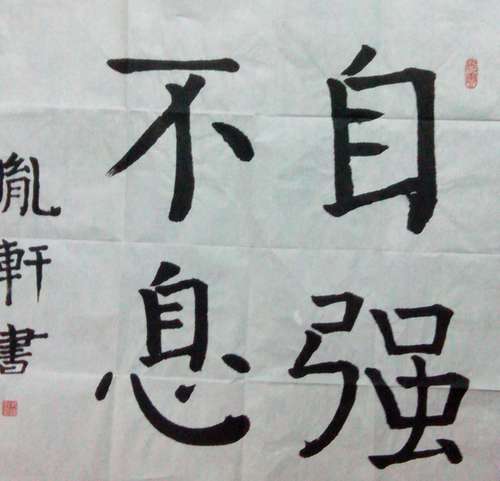 自强
不息
胤軒書